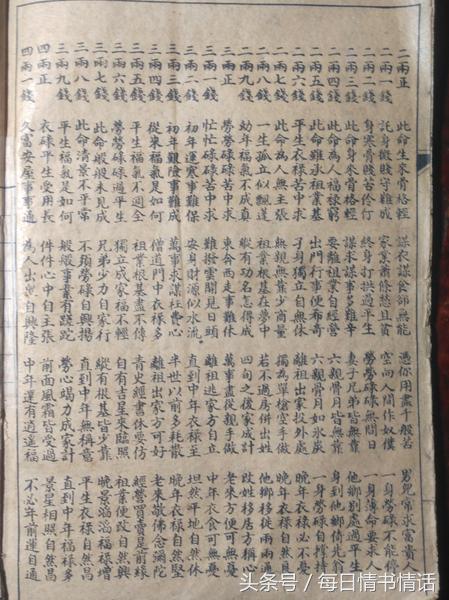 二兩正 此命生來骨格輕 謀衣謀食都無能 憑你用盡千般若 男兒常求富貴人
二兩一錢 託身微賤守難成 家業蕭條愁且貧 空向人間作奴僕 一身勞碌不能停
二兩二錢 身寒骨賤苦伶仃 終身打拱過平生 勞勞碌碌無間日 一身薄命要求人
二兩三錢 此命身來骨格輕 謀求謀事多難辛 妻子兄弟皆無靠 他鄉別處過平生
二兩四錢 此命為人福祿窮 要離祖業自經營 六親骨月皆無靠 身到他鄉倚先翁
二兩五錢 此命雖承祖業基 出門行事便希奇 六親骨月如氷炭 一身勞碌自撐持
二兩六錢 平生衣祿苦難成 子身獨立自無休 離祖出家投外處 晚年衣祿必不憂
二兩七錢 此命為人無主張 無親無靠少商量 獨為單槍空手做 晚年衣祿自然良
二兩八錢 一生孤立似飄蓬 祖業根基在夢中 若不過房併出姓 他鄉移徙兩兩通
二兩九錢 幼年福氣不成真 縱有功名怎得成 四旬之後家成計 改姓移居方稱心
三兩正 勞勞碌碌苦中求 東命西走事難休 萬事盡從親手做 老來方便可無憂
三兩一錢 忙忙碌碌苦中求 難撥雲開見日頭 離祖逃家方自立 中年衣食可無憂
三兩二錢 初年運寒事難保 安身財源似水流 直到中年衣祿至 坦然平地自然休
三兩三錢 初年艱險事難成 萬事求謀枉費心 半世以前多耗散 晚年衣祿自然堅
三兩四錢 從來福氣果如何 僧道門中衣祿多 離祖出家方可好 老來敬佛念彌陀
三兩五錢 平生福氣不週全 祖業根基盡不傳 青史經書休要仿 經營買賣是前緣
三兩六錢 勞勞碌碌過平生 獨立成家福不輕 自有吉星來臨照 祖業便改自然興
三兩七錢 此命般般未見成 兄弟少力自家行 縱有根基皆少靠 晚景滔滔福祿增
三兩八錢 此命清景不平常 不須勞碌自興揚 直到中年無稱意 平生衣祿自然昌
三兩九錢 平生福氣是如何 般般事業有蹉跎 勞心竭力成家計 直到中年福祿多
四兩正 衣祿平生受用長 件件心中自主張 前面風霜皆受過 景星相照自然昌
四兩一錢 久富安屋事事通 為人出眾自興隆 中年運有逍遙福 不必年前運自通
头条号 / 每日情书情话